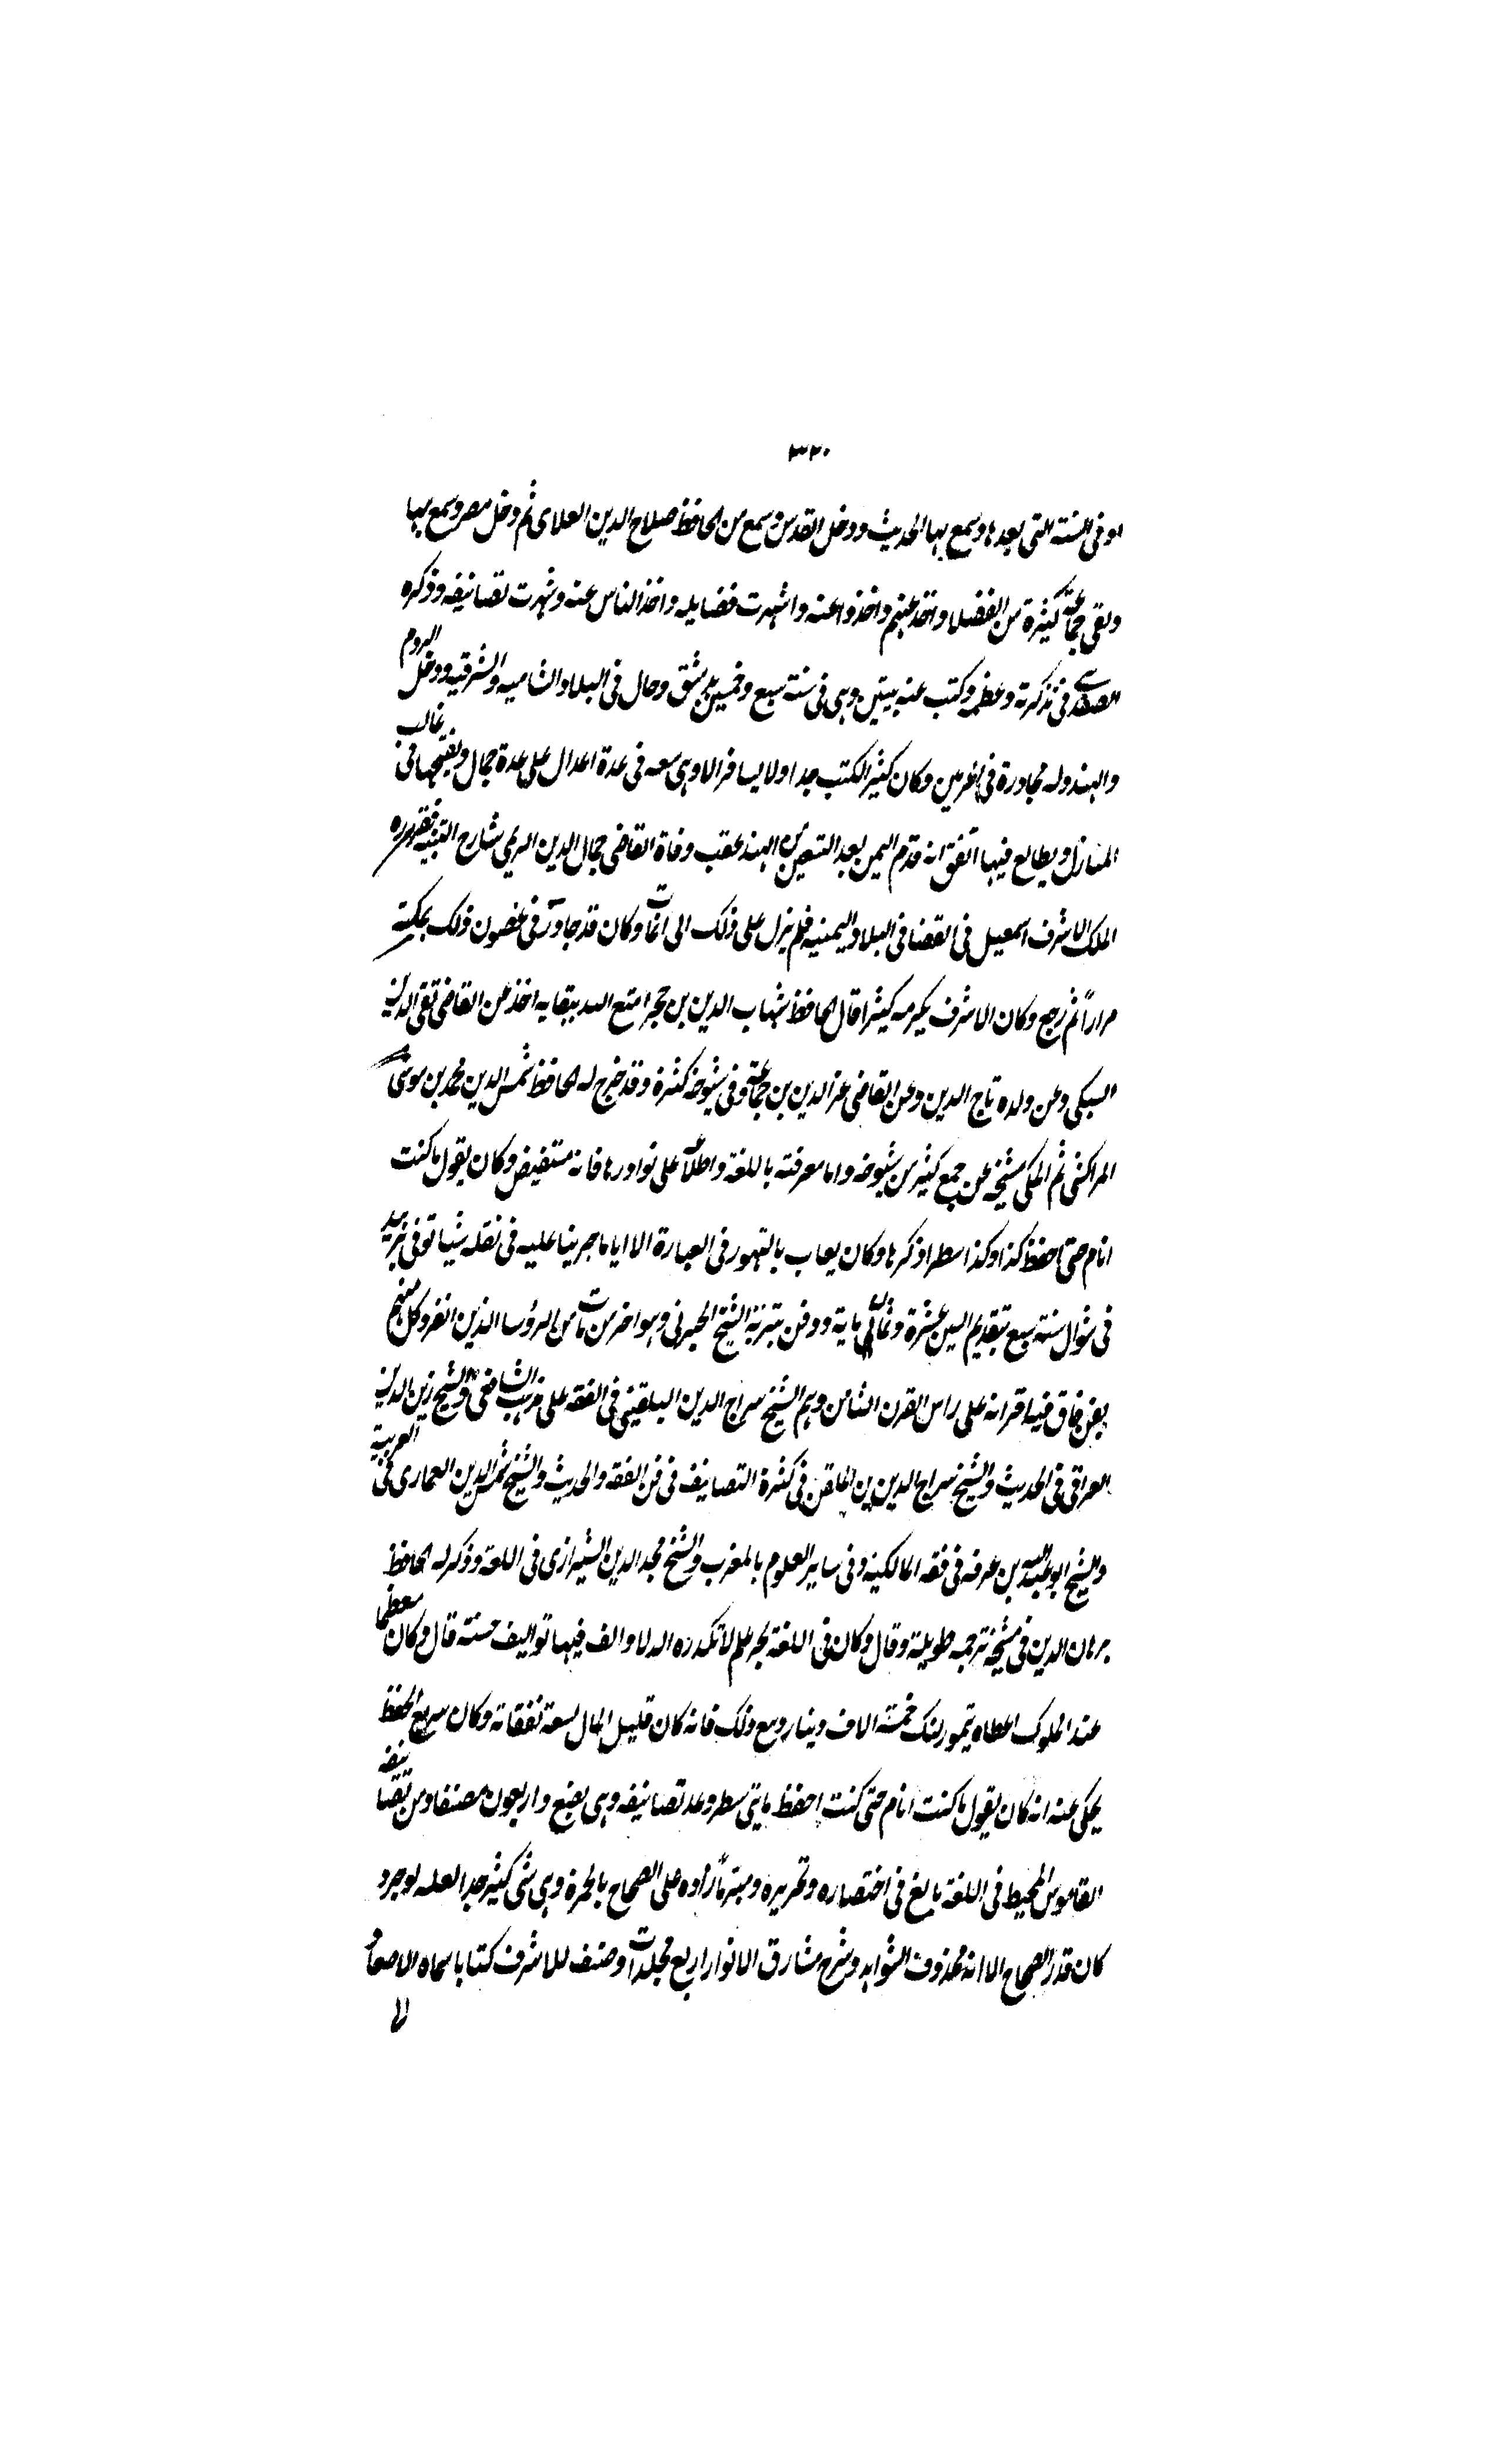 ٣٢٠
او فى السنة التى بعدها وسمع بها الحديث ودخل القدس وسمع من الحافظ صلاح الدين العلاى ثم دخل مصر وسمع بها
ولقى جماعة كثيرة من الفضلا واخذ عنهم واخذوا عنه واشتهرت فضايله واخذ الناس عنه وشهرت تصانيفه وذكره
الصفدى فى تذكرته وعظمه وكتب عنه بيتين وهى فى سنة سبع وخمسين بدمشق وجال فى البلاد الشاميه والشرقيه ودخل الروم
والهند وله مجاورة فى الحرمين وكان كثير الكتب جدا ولا يسافر الا وهى معه فى عدة اعدال على عدة جمال ويفتحها فى غالب
المنازل ويطالع فيها اتفق انه قدم اليمن بعد التسعين من الهند عقب وفاة القاضى جمال الدين الريمى شارح التنبيه فقرره
الملك الاشرف اسمعيل فى القضا فى البلاد اليمنيه فلم يزل على ذلك الى ان مات وكان قد جاور فى غضون ذلك بمكة
مراراً ثم رجع وكان الاشرف يكرمه كثيرا قال الحافظ شهاب الدين بن حجر امتع الله ببقايه اخذ عن القاضى تقى الدين
السبكى وعن ولده تاج الدين وعن القاضى عز الدين بن جماعة وفى شيوخه كثرة وقد خرج له الحافظ شمس الدين محمد بن موسى
المراكشى ثم المكى مشيخة عن جمع كثير من شيوخه واما معرفته باللغة واطلاعه على نوادرها فانه مستفيض وكان يقول ما كنت
انام حتى احفظ كذا وكذا سطرا ذكرها وكان يعاب بالتهور فى العبارة الا انا ما جربنا عليه فى نقله شيا توفى بزبيد
فى شوال سنة سبع بتقديم السين عشرة وثمانى ماية ودفن بتربة الشيخ الجبرتى وهو اخر من مات من الرؤسا الذين انفرد كل منهم
بفن فاق فيه اقرانه على راس القرن الثامن وهم الشيخ سراج الدين البلقينى فى الفقه على مذهب الشافعى والشيخ زين الدين
العراقى فى الحديث والشيخ سراج الدين بن الملقن فى كثرة التصانيف فى فن الفقه والحديث والشيخ شمس الدين الغمارى فى العربية
والشيخ ابو عبد الله بن عرفه فى فقه المالكية وفى ساير العلوم بالمغرب والشيخ مجد الدين الشيرازى فى اللغة وذكر له الحافظ
برهان الدين فى مشيخته ترجمه طويلة وقال وكان فى اللغة بحر علم لا تكدره الدلا والف فيها تواليف حسنة قال وكان معظما
عند الملوك اعطاه تيمورلنك خمسة الاف دينار ومع ذلك فانه كان قليل المال لسعة نفقاته وكان سريع الحفظ
يحكى عنه انه كان يقول ما كنت انام حتى كنت احفظ مايتى سطر وعد تصانيفه وهى بضع واربعون مصنفا ومن تصانيفه
القاموس المحيط فى اللغة بالغ فى اختصاره وتحريره وميز ما زاده على الصحاح بالحمرة وهى شى كثير جدا لعله لو جرد
كان قدر الصحاح الا انه محذوف الشواهد وشرح مشارق الانوار اربع مجلدات وصنف للاشرف كتابا سماه الاصعاد
الى